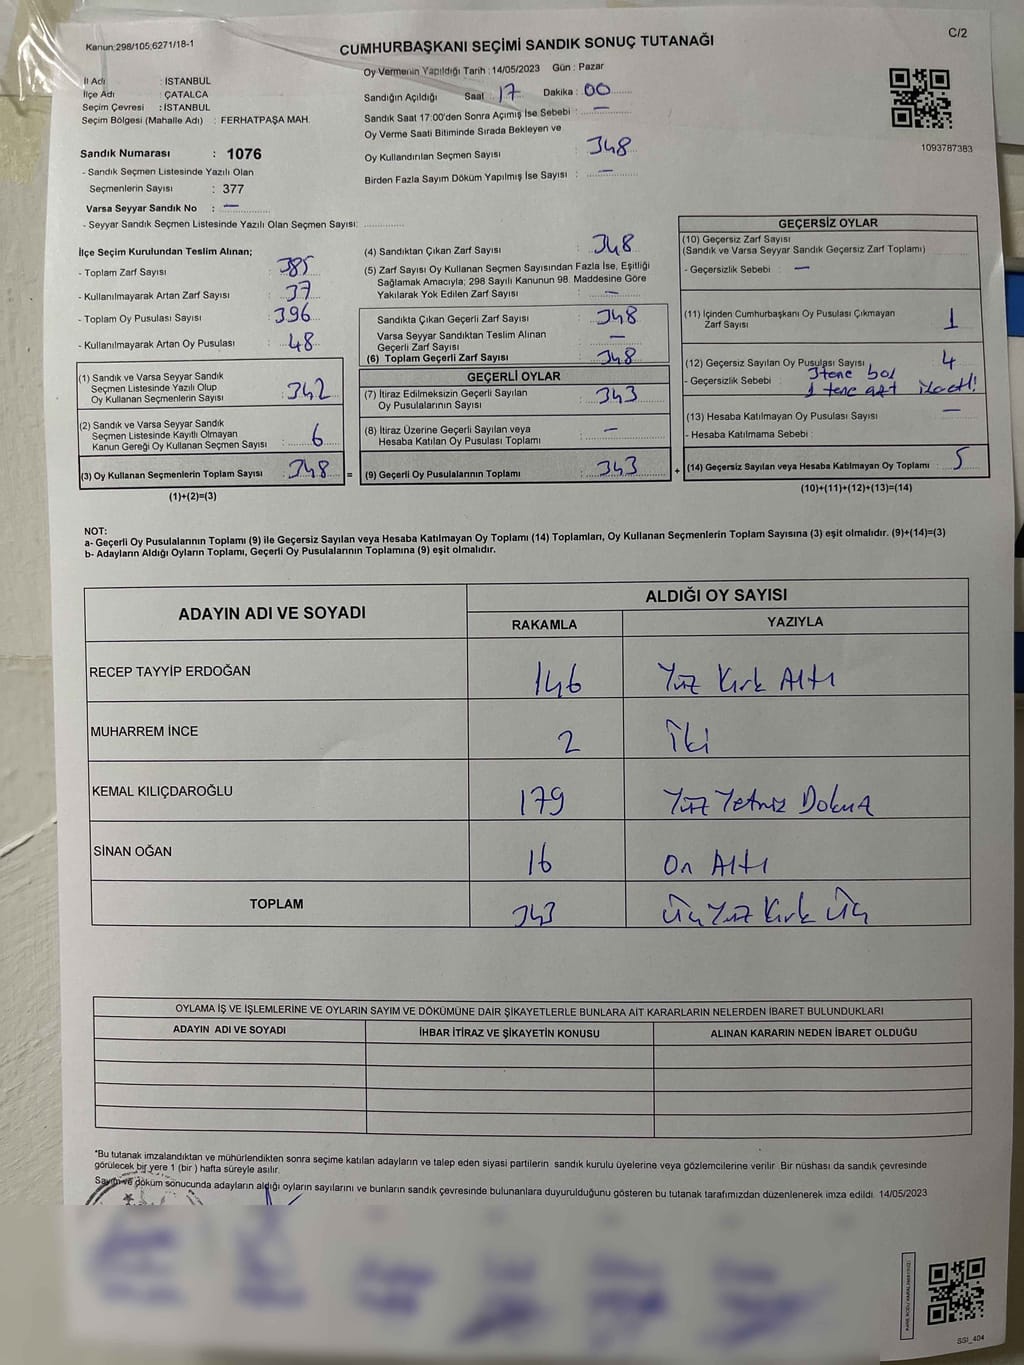 Kanun:298/105;6271/18-1
C/2
CUMHURBAŞKANI SEÇİMİ SANDIK SONUÇ TUTANAĞI
İl Adı : İSTANBUL
İlçe Adı : ÇATALCA
Seçim Çevresi : İSTANBUL
Seçim Bölgesi (Mahalle Adı) : FERHATPAŞA MAH.
Sandık Numarası : 1076
- Sandık Seçmen Listesinde Yazılı Olan
Seçmenlerin Sayısı : 377
Varsa Seyyar Sandık No : —
- Seyyar Sandık Seçmen Listesinde Yazılı Olan Seçmen Sayısı:
Oy Vermenin Yapıldığı Tarih : 14/05/2023 Gün : Pazar
Sandığın Açıldığı Saat : 17 Dakika : 00
Sandık Saat 17:00'den Sonra Açımış İse Sebebi : —
Oy Verme Saati Bitiminde Sırada Bekleyen ve
Oy Kullandırılan Seçmen Sayısı : 348
Birden Fazla Sayım Döküm Yapılmış İse Sayısı : —
1093787383
İlçe Seçim Kurulundan Teslim Alınan;
- Toplam Zarf Sayısı : 385
- Kullanılmayarak Artan Zarf Sayısı : 37
- Toplam Oy Pusulası Sayısı : 396
- Kullanılmayarak Artan Oy Pusulası : 48
(1) Sandık ve Varsa Seyyar Sandık
Seçmen Listesinde Yazılı Olup
Oy Kullanan Seçmenlerin Sayısı : 342
(2) Sandık ve Varsa Seyyar Sandık
Seçmen Listesinde Kayıtlı Olmayan
Kanun Gereği Oy Kullanan Seçmen Sayısı : 6
(3) Oy Kullanan Seçmenlerin Toplam Sayısı : 348
(1)+(2)=(3)
(4) Sandıktan Çıkan Zarf Sayısı : 348
(5) Zarf Sayısı Oy Kullanan Seçmen Sayısından Fazla İse, Eşitliği
Sağlamak Amacıyla; 298 Sayılı Kanunun 98. Maddesine Göre
Yakılarak Yok Edilen Zarf Sayısı : —
Sandıkta Çıkan Geçerli Zarf Sayısı : 348
Varsa Seyyar Sandıktan Teslim Alınan
Geçerli Zarf Sayısı : —
(6) Toplam Geçerli Zarf Sayısı : 348
GEÇERLİ OYLAR
(7) İtiraz Edilmeksizin Geçerli Sayılan
Oy Pusulalarının Sayısı : 343
(8) İtiraz Üzerine Geçerli Sayılan veya
Hesaba Katılan Oy Pusulası Toplamı : —
= (9) Geçerli Oy Pusulalarının Toplamı : 343
GEÇERSİZ OYLAR
(10) Geçersiz Zarf Sayısı
(Sandık ve Varsa Seyyar Sandık Geçersiz Zarf Toplamı)
- Geçersizlik Sebebi : —
(11) İçinden Cumhurbaşkanı Oy Pusulası Çıkmayan
Zarf Sayısı 1
(12) Geçersiz Sayılan Oy Pusulası Sayısı : 4
- Geçersizlik Sebebi : 3 tane
1 tane
(13) Hesaba Katılmayan Oy Pusulası Sayısı : —
- Hesaba Katılmama Sebebi :
+ (14) Geçersiz Sayılan veya Hesaba Katılmayan Oy Toplamı : 5
(10)+(11)+(12)+(13)=(14)
NOT:
a- Geçerli Oy Pusulalarının Toplamı (9) ile Geçersiz Sayılan veya Hesaba Katılmayan Oy Toplamı (14) Toplamları, Oy Kullanan Seçmenlerin Toplam Sayısına (3) eşit olmalıdır. (9)+(14)=(3)
b- Adayların Aldığı Oyların Toplamı, Geçerli Oy Pusulalarının Toplamına (9) eşit olmalıdır.
ADAYIN ADI VE SOYADI ALDIĞI OY SAYISI
RAKAMLA YAZIYLA
RECEP TAYYİP ERDOĞAN 146 Yüz Kırk Altı
MUHARREM İNCE 2 İki
KEMAL KILIÇDAROĞLU 179 Yüz Yetmiş Dokuz
SİNAN OĞAN 16 On Altı
TOPLAM 343 Üç Yüz Kırk Üç
OYLAMA İŞ VE İŞLEMLERİNE VE OYLARIN SAYIM VE DÖKÜMÜNE DAİR ŞİKAYETLERLE BUNLARA AİT KARARLARIN NELERDEN İBARET BULUNDUKLARI
ADAYIN ADI VE SOYADI İHBAR İTİRAZ VE ŞİKAYETİN KONUSU ALINAN KARARIN NEDEN İBARET OLDUĞU
*Bu tutanak imzalandıktan ve mühürlendikten sonra seçime katılan adayların ve talep eden siyasi partilerin sandık kurulu üyelerine veya gözlemcilerine verilir. Bir nüshası da sandık çevresinde
görülecek bir yere 1 (bir ) hafta süreyle asılır.
Sayım ve döküm sonucunda adayların aldığı oyların sayılarını ve bunların sandık çevresinde bulunanlara duyurulduğunu gösteren bu tutanak tarafımızdan düzenlenerek imza edildi. 14/05/2023
SGI_404